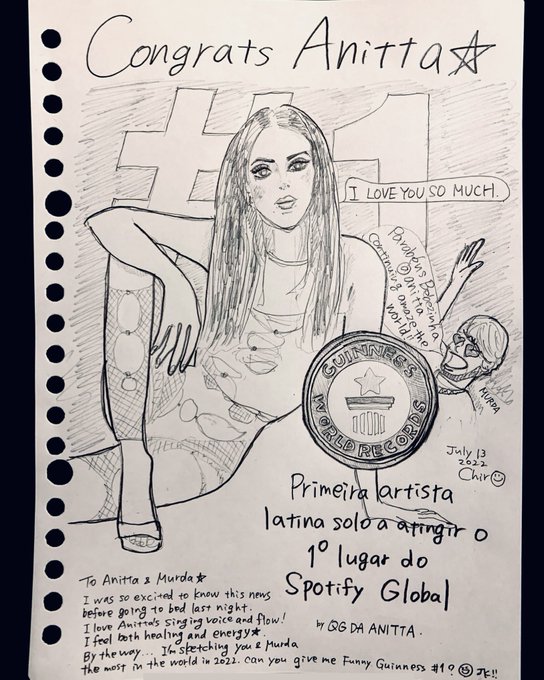 Congrats Anitta☆
#1
I LOVE YOU SO MUCH.
Parabéns Bebezinha
@anitta
continuing amaze the
world!!
GUINNESS
WORLD RECORDS
MURDA
July 13
2022
Chir☺
Primeira artista
latina solo a atingir o
1º lugar do
Spotify Global
by QG DA ANITTA.
To Anitta & Murda☆
I was so excited to know this news
before going to bed last night.
I love Anitta's singing voice and flow!
I feel both healing and energy☆.
By the way... I'm sketching you & Murda
the most in the world in 2022. can you give me Funny Guinness #1? ☺ JK!!